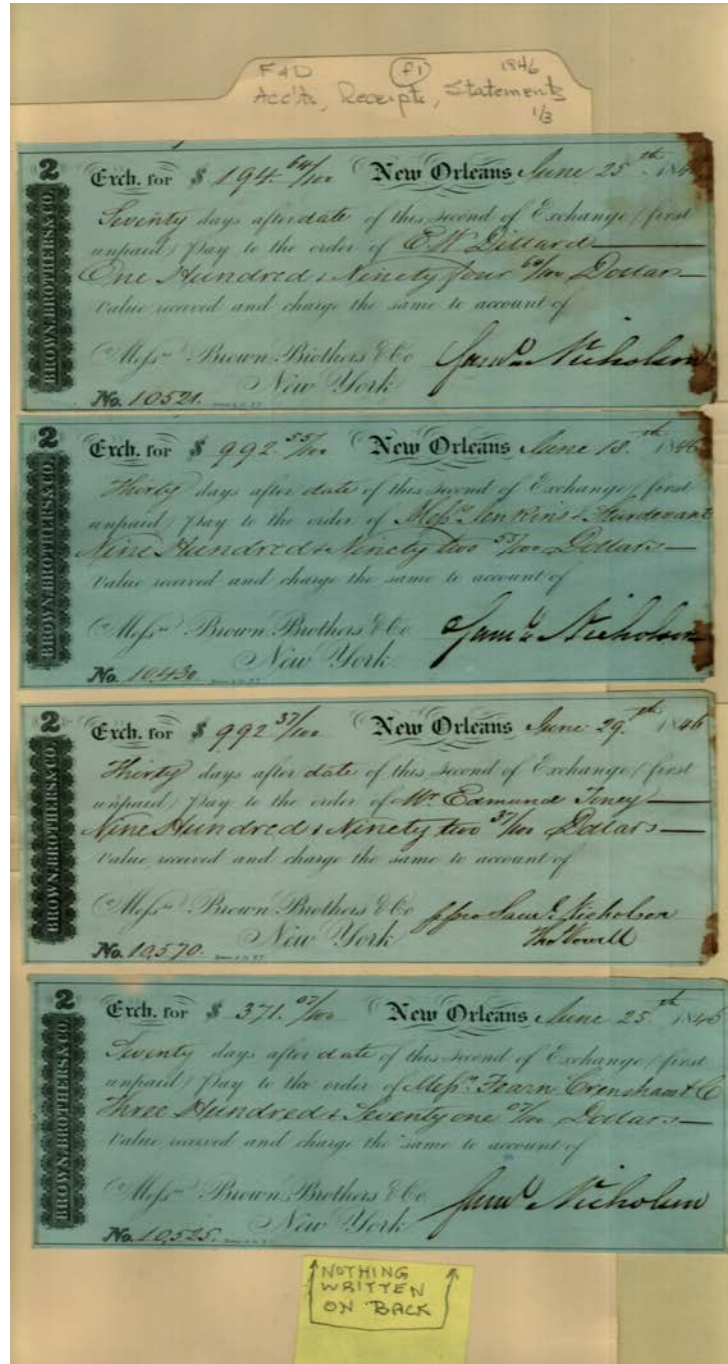 F & D (f1) 1846
Acc'ts, Receipts, Statements
1/3
2
BROWN, BROTHERS & CO.
Exch. for $ 194. 64/100 New Orleans June 25.th 184
Seventy days after date of this second of Exchange (first
unpaid) Pay to the order of E W Dillard
One Hundred & Ninety four 64/100 Dollars
Value received and charge the same to account of
Messrs Brown Brothers & Co Saml Nicholson
New York
No. 10521.
2
BROWN, BROTHERS & CO.
Exch. for $ 992. 55/100 New Orleans June 18.th 1846
Thirty days after date of this second of Exchange (first
unpaid) Pay to the order of Messrs Jenkins & Sturdevant
Nine Hundred & Ninety two 55/100 Dollars
Value received and charge the same to account of
Messrs Brown Brothers & Co Saml Nicholson
New York
No. 10,430.
2
BROWN, BROTHERS & CO.
Exch. for $ 992 37/100 New Orleans June 29.th 1846
Thirty days after date of this second of Exchange (first
unpaid) Pay to the order of Mr Edmund Toney
Nine Hundred & Ninety two 37/100 Dollars
Value received and charge the same to account of
Messrs Brown Brothers & Co ppro Saml Nicholson
New York Thos Vowell
No. 10,570.
2
BROWN, BROTHERS & CO.
Exch. for $ 371. 07/100 New Orleans June 25.th 1846
Seventy days after date of this second of Exchange (first
unpaid) Pay to the order of Messrs Fearn Crenshaw & C
Three Hundred & Seventy one 07/100 Dollars
Value received and charge the same to account of
Messrs Brown Brothers & Co Saml Nicholson
New York
No. 10,525.
NOTHING
WRITTEN
ON BACK